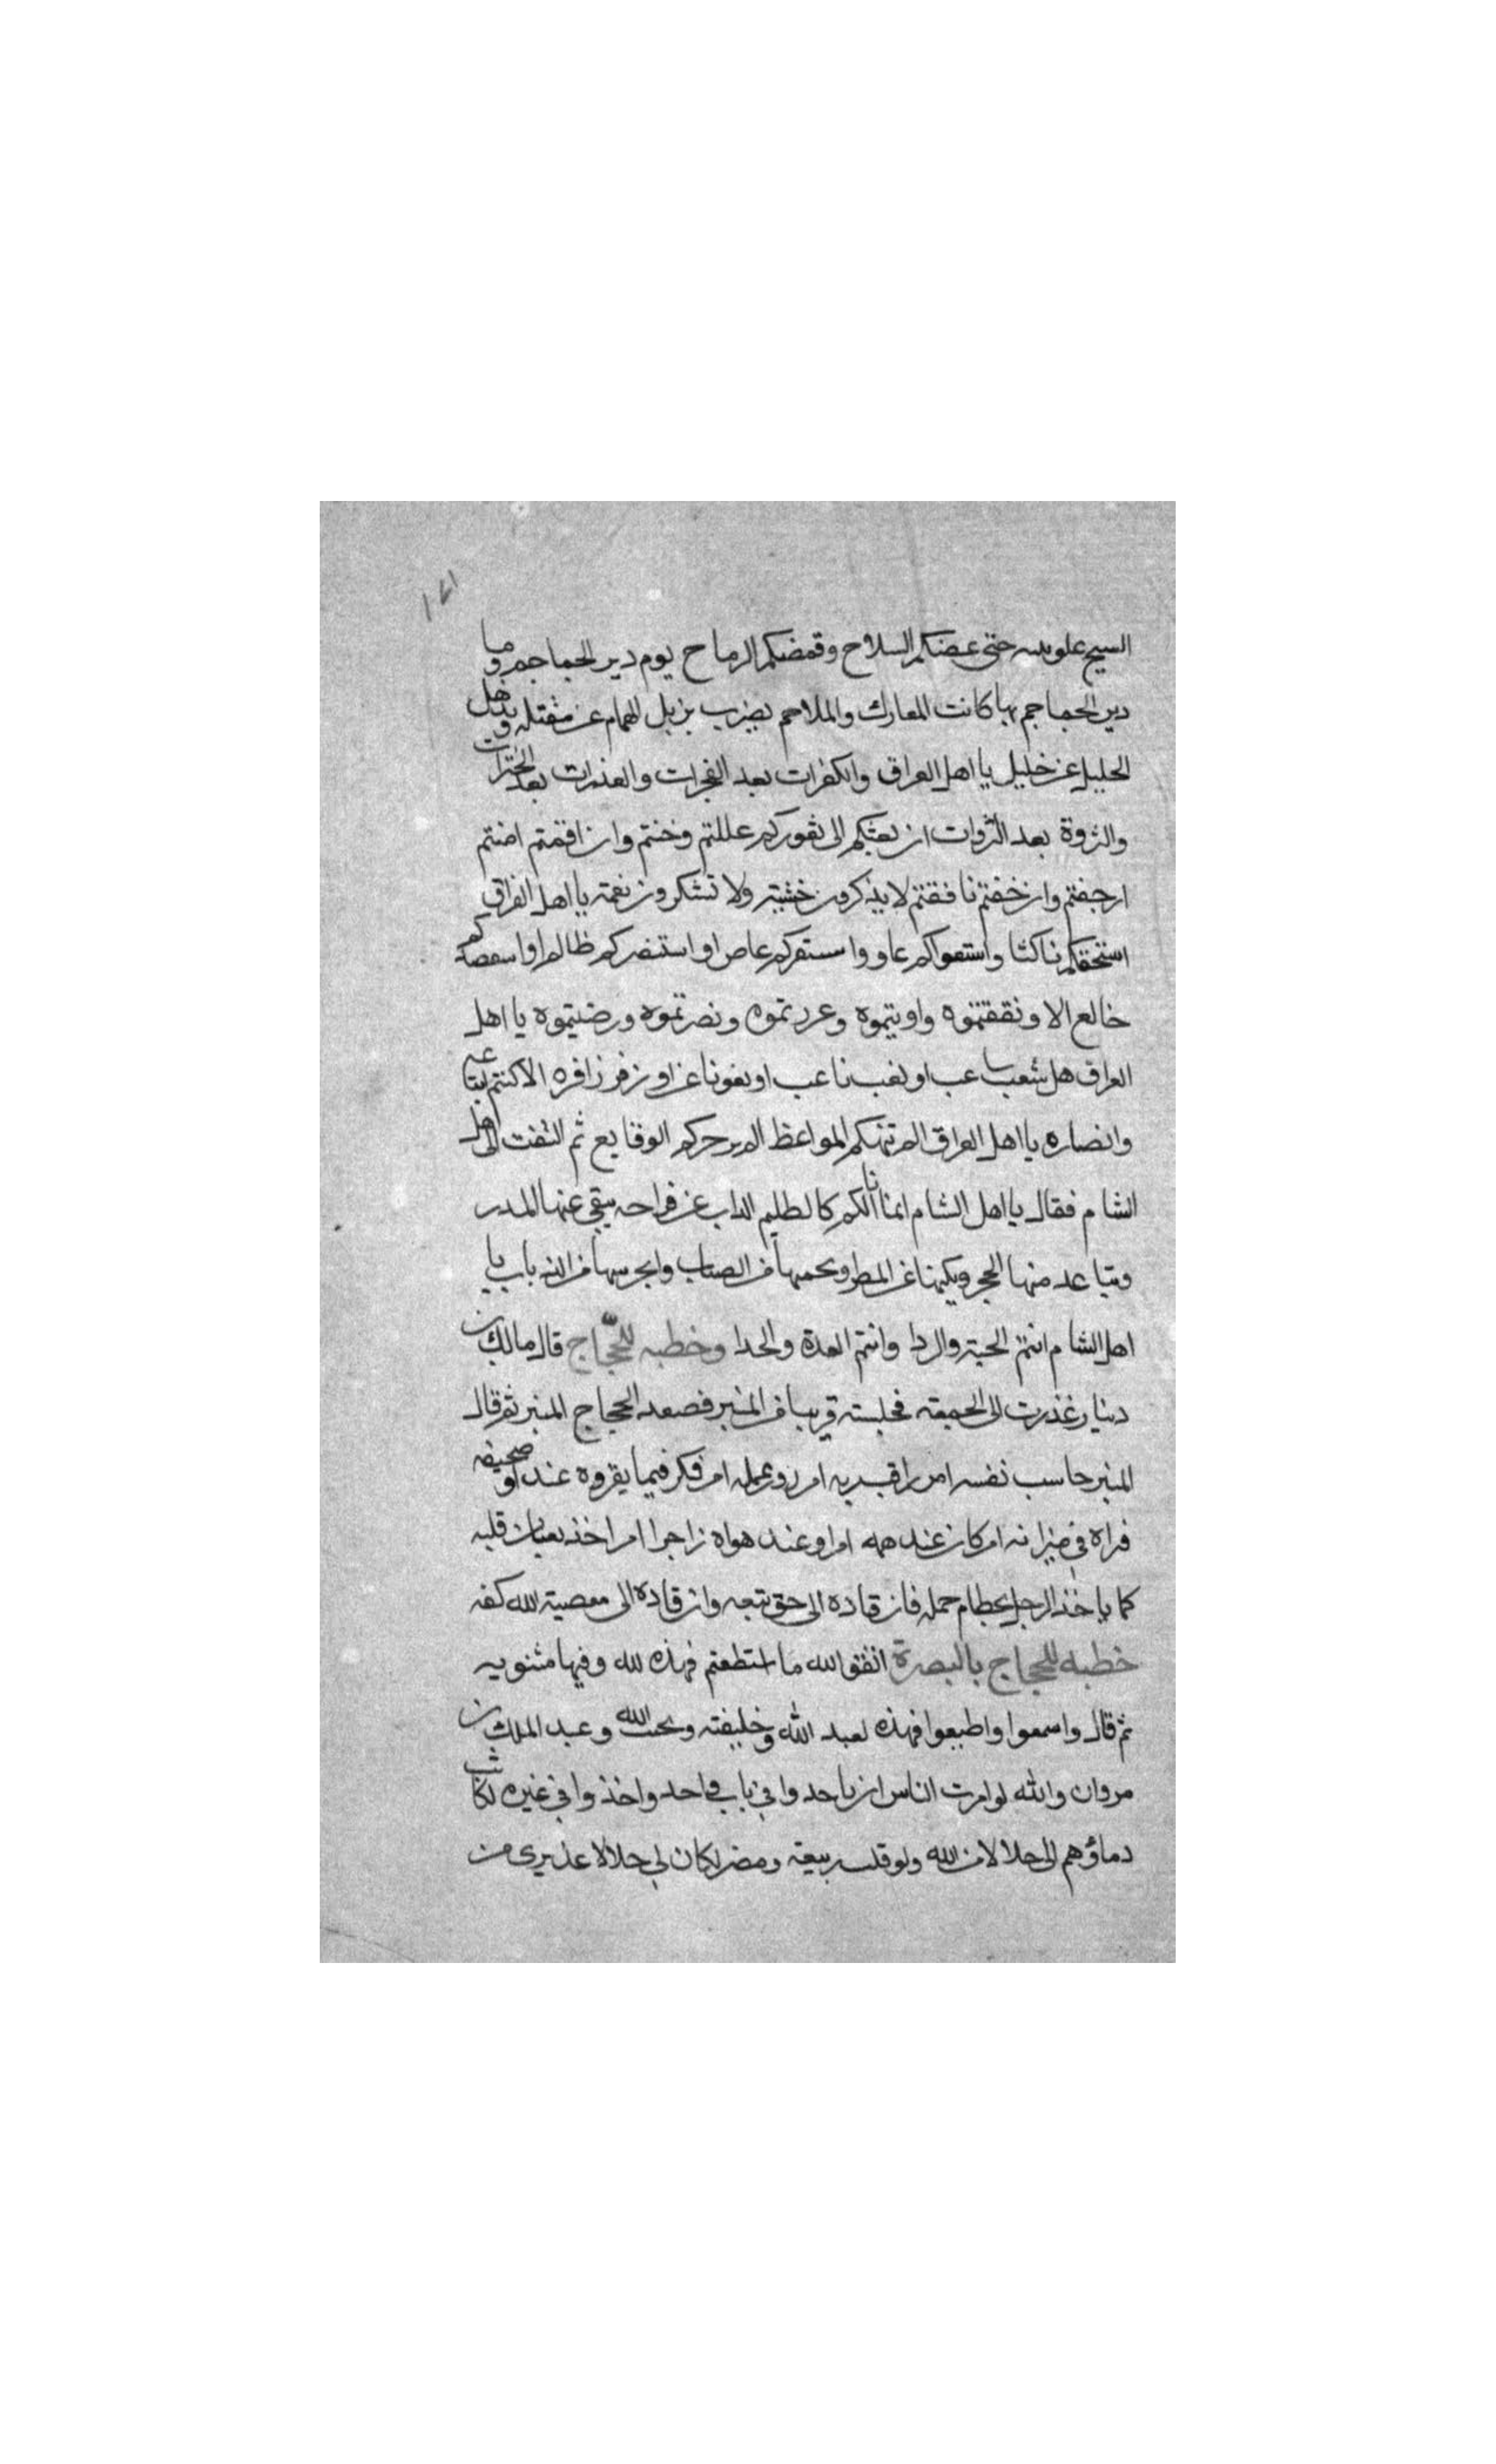 ١٧١
السيح على بنيه حتى عضكم السلاح وقصمكم الرماح يوم دير الجماجم وما
دير الجماجم بها كانت المعارك والملاحم بضرب يزيل الهام عن مقتله ويذهل
الخليل عن خليل يا اهل العراق والكفرات بعد الفجرات والغدرات بعد الخترات
والنزوة بعد النزوات ان بعثتكم الى ثغوركم غللتم وخنتم وان اقمتم امنتم
ارجفتم وان خفتم نافقتم لا يذكرون خشية ولا تشكرون نعمة يا اهل العراق
استخفكم ناكثا واستغواكم غاو واستفزكم عاص او استنصركم ظالم او استعصدكم
خالع الا ونقفتموه واويتموه وعررتموه ونصرتموه ورضيتموه يا اهل
العراق هل شعب شاعب او نعب ناعب او زفر زافره الا كنتم اتباعه
وانصاره يا اهل العراق الم تنهكم المواعظ الم يزجركم الوقايع ثم التفت الى اهل
الشام فقال يا اهل الشام انما انا لكم كالظليم الذاب عن فراخه ينفي عنها المدر
ويتباعد منها الحجر ويكنها عن المطر ويحميها من الضباب ويحرسها من الذباب يا
اهل الشام انتم الجنة والردا وانتم العدة والحدا وخطبه للحجاج قال مالك بن
دينار غدوت الى الجمعة فجلست قريبا من المنبر فصعد الحجاج المنبر ثم قال
المنبر حاسب نفسه امر راقب ربه امر زور عمله امر فكر فيما يقروه غدا في صحيفه
فراه في ميزانه امر كان عند همه امرا وعند هواه زاجرا امر اخذ بعنان قلبه
كما ياخذ الرجل بخطام جمله فان قاده الى حق تبعه وان قاده الى معصية الله كفه
خطبه للحجاج بالبصرة اتقوا الله ما استطعتم فهذه لله وفيها مثنويه
ثم قال واسمعوا واطيعوا فهذه لعبد الله وخليفته ونجيب الله وعبد الملك بن
مروان والله لو امرت الناس ان ياخذوا في باب واحد واخذوا في غيره لكانت
دماؤهم الى حلالا من الله ولو قتلت ربيعة ومضر لكان لي حلالا عذيري من